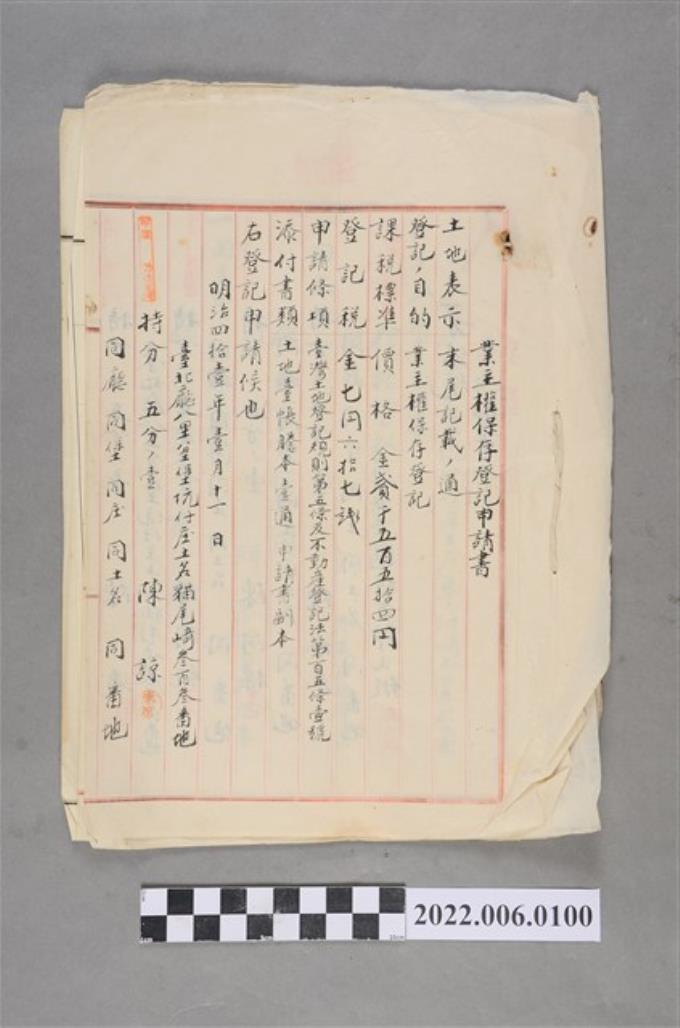 業主權保存登記申請書
土地表示 末尾記載ノ通
登記ノ目的 業主權保存登記
課税標準價格 金貳千五百五拾四円
登記税 金七円六拾七銭
申請條項 臺灣土地登記規則第五條及不動産登記法第百五條壹號
添付書類 土地臺帳謄本壹通 申請書副本
右登記申請候也
明治四拾壹年壹月十一日
臺北廳八里坌堡坑仔庄土名貓尾崎叁百叁番地
持分 五分ノ壹 陳 諒
同廳同堡同庄同土名 同番地
2022.006.0100